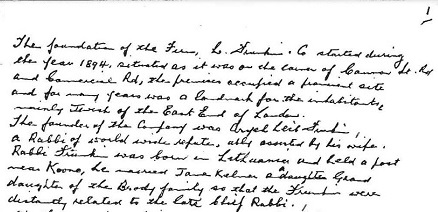 1
The foundation of the Firm, L. Frumkin & Co started during
the year 1894, situated as it was on the corner of Cannon St. Rd
and Commercial Rd, the premises occupied a prominent site
and for many years was a landmark for the inhabitants,
mainly Jewish of the East End of London.
The founder of the Company was Aryeh Leib Frumkin,
a Rabbi of world wide repute, ably assisted by his wife.
Rabbi Frumkin was born in Lithuania and held a post
near Kovno, he married Tana Kelner a daughter Grand
daughter of the Brody family so that the Frumkin were
distantly related to the late Chief Rabbi.